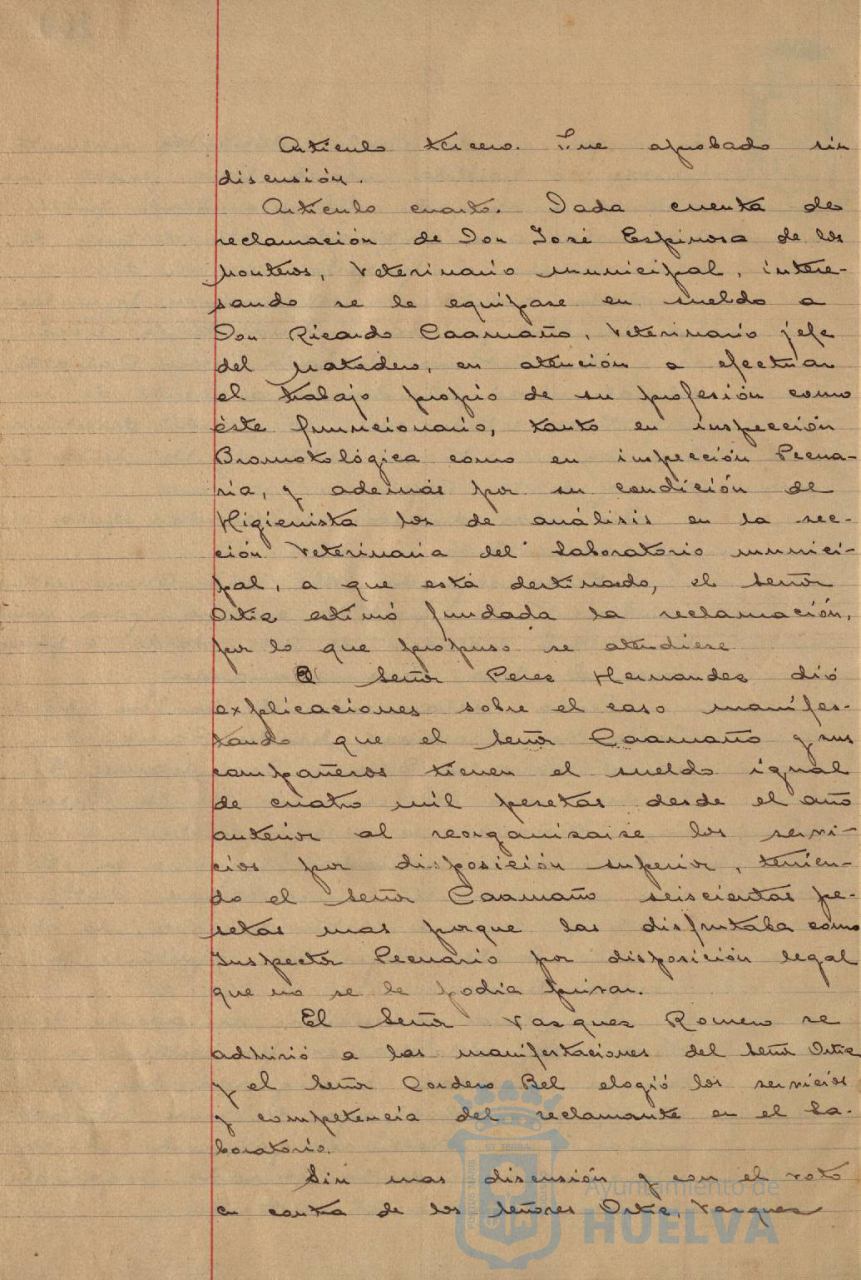 Artículo tercero. Fue aprobado sin
discusión.
Artículo cuarto. Dada cuenta de
reclamación de Don José Espinosa de los
Monteros, Veterinario municipal, intere-
sando se le equipare en sueldo a
Don Ricardo Caamaño, Veterinario jefe
del Matadero, en atención a efectuar
el trabajo propio de su profesión como
éste funcionario, tanto en inspección
Bromotológica como en inspección Pecua-
ria, y además por su condición de
Higienista los de análisis en la sec-
ción Veterinaria del laboratorio munici-
pal, a que está destinado, el señor
Ortiz estimó fundada la reclamación,
por lo que propuso se atendiese
El Señor Perez Hernandez dió
explicaciones sobre el caso manifes-
tando que el Señor Caamaño y sus
compañeros tienen el sueldo igual
de cuatro mil pesetas desde el año
anterior al reorganizarse los servi-
cios por disposición superior, tenien-
do el Señor Caamaño seiscientas pe-
setas mas porque las disfrutaba como
Inspector Pecuario por disposición legal
que no se le podía privar.
El Señor Vazquez Romero se
adhirió a las manifestaciones del Señor Ortiz
y el Señor Cordero Bel elogió los servicios
y competencia del reclamante en el la-
boratorio.
Sin mas discusión y con el voto
en contra de los señores Ortiz, Vazquez
Ayuntamiento de
HUELVA